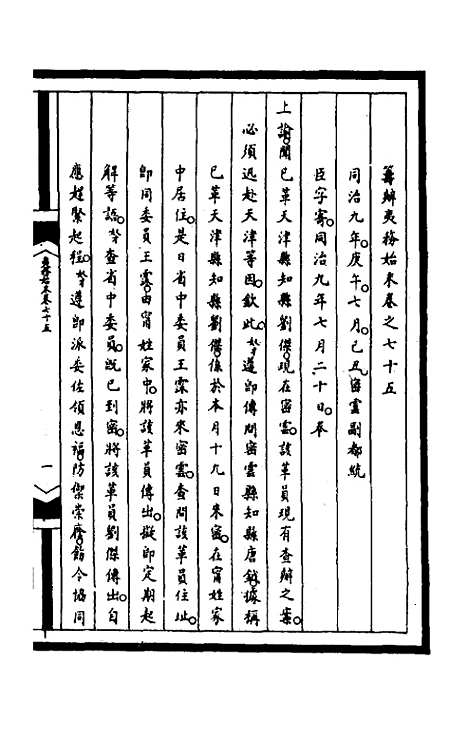 籌辦夷務始末卷之七十五
同治九年。庚午。七月。己丑。密雲副都統
臣字寄。同治九年七月二十日。奉
上諭。聞已革天津縣知縣劉傑。現在密雲。該革員現有查辦之案。
必須迅赴天津等因。欽此。奴才遵即傳問密雲縣知縣唐鉞。據稱
已革天津縣知縣劉傑。係於本月十九日來密。在甯姓家
中居住。是日省中委員王霖亦來密雲。查問該革員住址。
即同委員王霖。由甯姓家中。將該革員傳出。擬即定期起
解等語。奴才查省中委員。既已到密。將該革員劉傑傳出。自
應趕緊起程。奴才遵即派委佐領恩福。防禦崇慶。飭令協同
夷務始末卷七十五
一